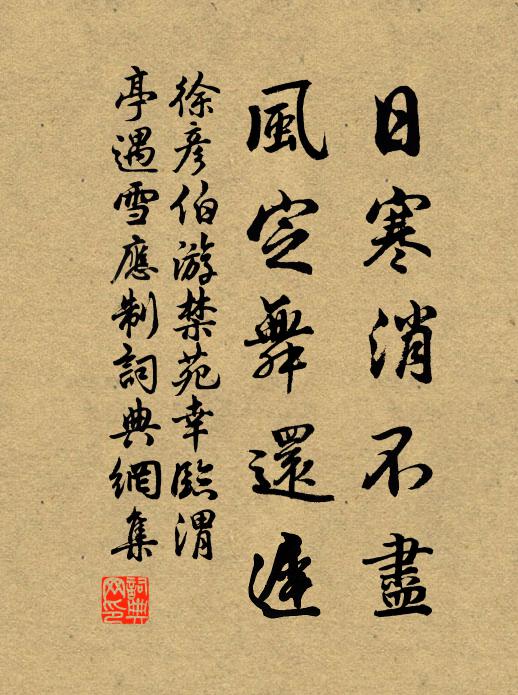 日寒消不盡
風定舞還遲
徐彥伯游禁苑幸臨渭
亭遇雪應制詞典網集
詞典
网印